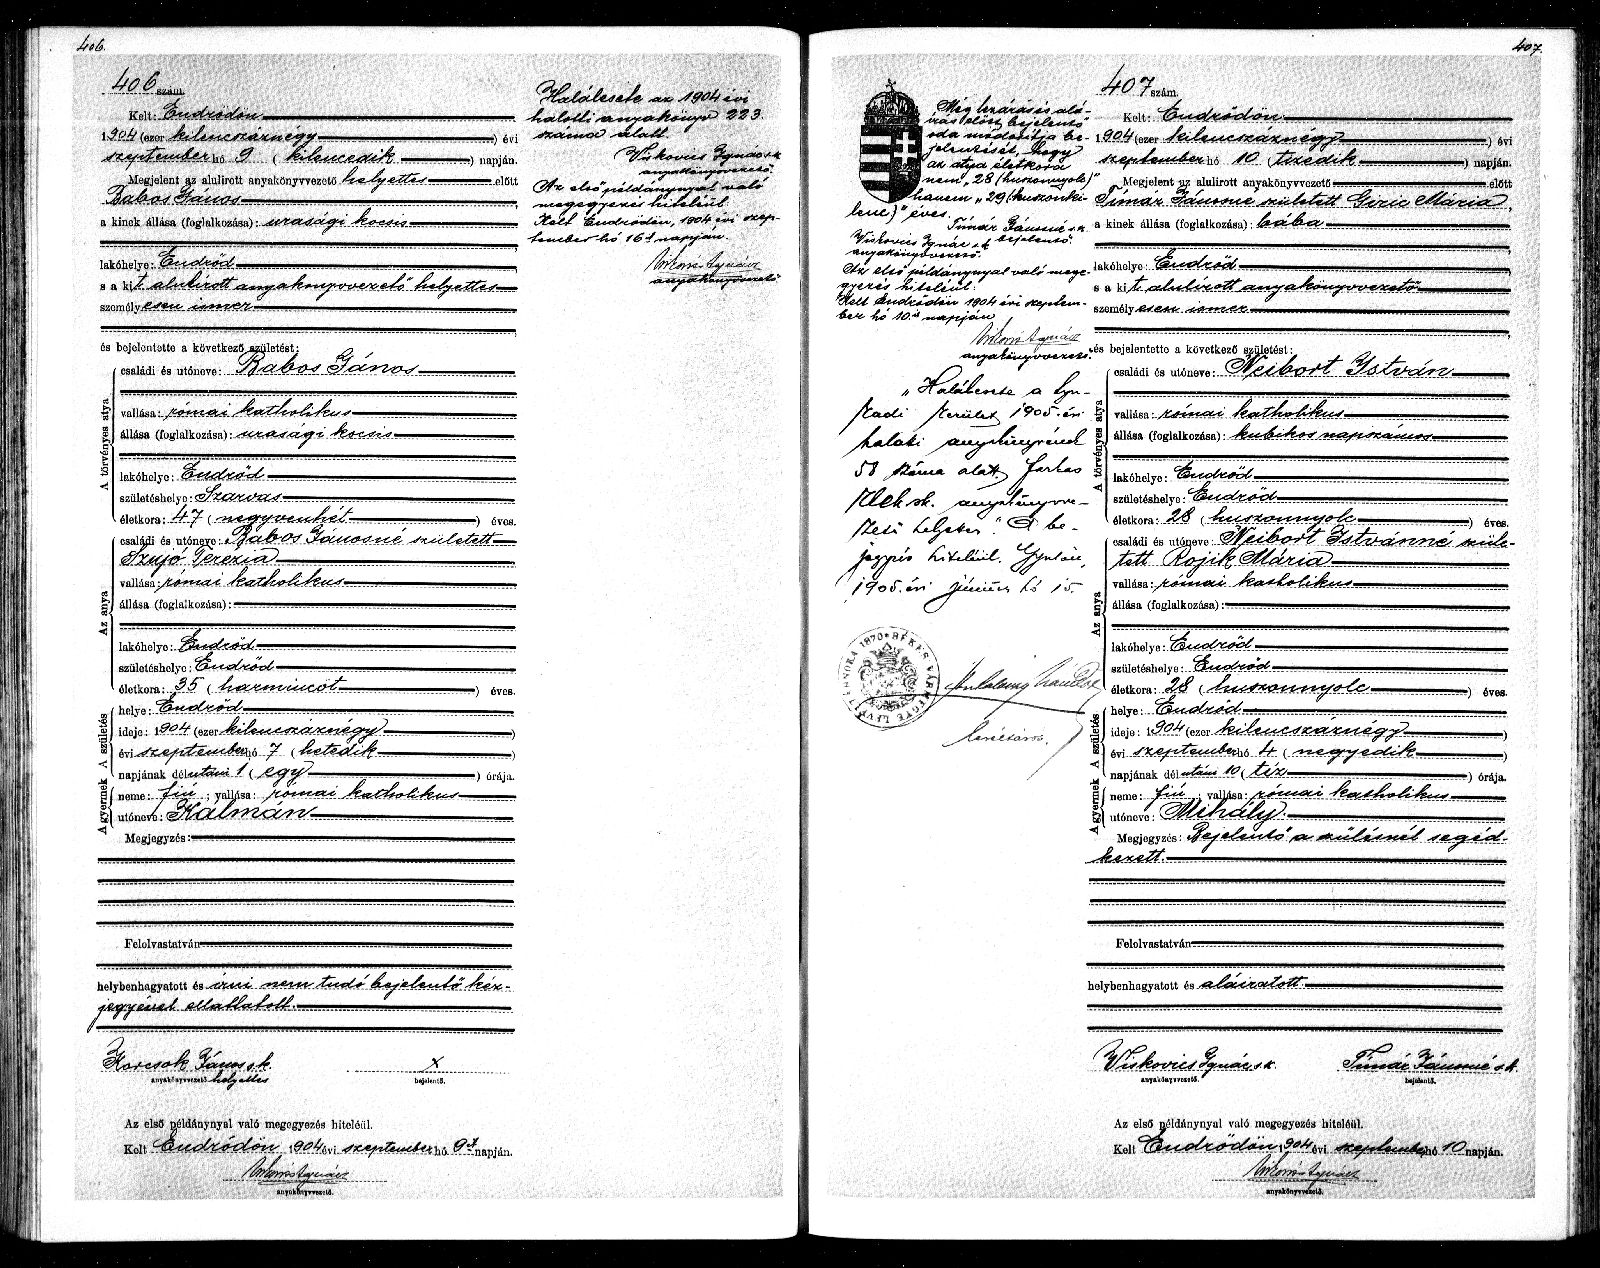 406.
406 szám.
Kelt: Endrődön
1904 (ezer kilencszáznégy) évi
szeptember hó 9 (kilencedik) napján.
Megjelent az alulirott anyakönyvvezető helyettes előtt
Babos János
a kinek állása (foglalkozása): urasági kocsis
lakóhelye: Endrőd
s a kit alulirott anyakönyvvezető helyettes
személyesen ismer
és bejelentette a következő születést:
A törvényes atya
családi és utóneve: Babos János
vallása: római katholikus
állása (foglalkozása): urasági kocsis
lakóhelye: Endrőd
születéshelye: Szarvas
életkora: 47 (negyvenhét) éves.
Az anya
családi és utóneve: Babos Jánosné született
Szujó Terézia
vallása: római katholikus
állása (foglalkozása):
lakóhelye: Endrőd
születéshelye: Endrőd
életkora: 35 (harmincöt) éves.
A születés
helye: Endrőd
ideje: 1904 (ezer kilencszáznégy)
évi szeptember hó 7 (hetedik)
napjának délutáni 1 (egy) órája.
A gyermek
neme: fiú; vallása: római katholikus
utóneve: Kálmán
Megjegyzés:
Felolvastatván
helybenhagyatott és írni nem tudó bejelentő kéz-
jegyével elláttatott.
Korcsok János s.k. x
anyakönyvvezető helyettes bejelentő.
Az első példánynyal való megegyezés hiteléül.
Kelt Endrődön 1904 évi szeptember hó 9 napján.
Viskovics Ignácz
anyakönyvvezető.
Halálesete az 1904 évi
halotti anyakönyv 223
száma alatt.
Viskovics Ignác s.k.
anyakönyvvezető.
Az első példánynyal való
megegyezés hiteléül.
Kelt Endrődön, 1904 évi szep-
tember hó 16 napján.
Viskovics Ignácz
anyakönyvvezető
407.
407 szám.
Kelt: Endrődön
1904 (ezer kilencszáznégy) évi
szeptember hó 10 (tizedik) napján.
Megjelent az alulirott anyakönyvvezető előtt
Tímár Jánosné született Géria Mária,
a kinek állása (foglalkozása): bába
lakóhelye: Endrőd
s a kit alulirott anyakönyvvezető
személyesen ismer
és bejelentette a következő születést:
A törvényes atya
családi és utóneve: Neibort István
vallása: római katholikus
állása (foglalkozása): kubikos napszámos
lakóhelye: Endrőd
születéshelye: Endrőd
életkora: 28 (huszonnyolc) éves.
Az anya
családi és utóneve: Neibort Istvánné szüle-
tett Rojik Mária
vallása: római katholikus
állása (foglalkozása):
lakóhelye: Endrőd
születéshelye: Endrőd
életkora: 28 (huszonnyolc) éves.
A születés
helye: Endrőd
ideje: 1904 (ezer kilencszáznégy)
évi szeptember hó 4 (negyedik)
napjának délutáni 10 (tíz) órája.
A gyermek
neme: fiú; vallása: római katholikus
utóneve: Mihály.
Megjegyzés: Bejelentő a szülésnél segéd-
kezett.
Felolvastatván
helybenhagyatott és aláiratott.
Viskovics Ignác s.k. Tímár Jánosné s.k.
anyakönyvvezető. bejelentő.
Az első példánynyal való megegyezés hiteléül.
Kelt Endrődön 1904 évi szeptember hó 10 napján.
Viskovics Ignácz
anyakönyvvezető.
Még lezárás és alá-
írás előtt bejelentő
oda módosítja be-
jelentését, hogy
az atya életkora
nem "28 (huszonnyolc)"
hanem "29 (huszonki-
lenc)" éves.
Tímár Jánosné s.k.
bejelentő.
Viskovics Ignác s.k.
anyakönyvvezető.
Az első példánynyal való mege-
gyezés hiteléül.
Kelt Endrődön 1904 évi szeptem-
ber hó 10 napján
Viskovics Ignácz
anyakönyvvezető.
"Halálesete a Gyn-
kerület 1905. évi
halotti
58 száma alatt. Farkas
sk. anyakönyvve-
zető helyettes." A be-
jegyzés hiteléül. Gyula,
1905. évi június hó 15.
BÉKÉS VÁRMEGYE LEVÉLTÁRNOKA 1870